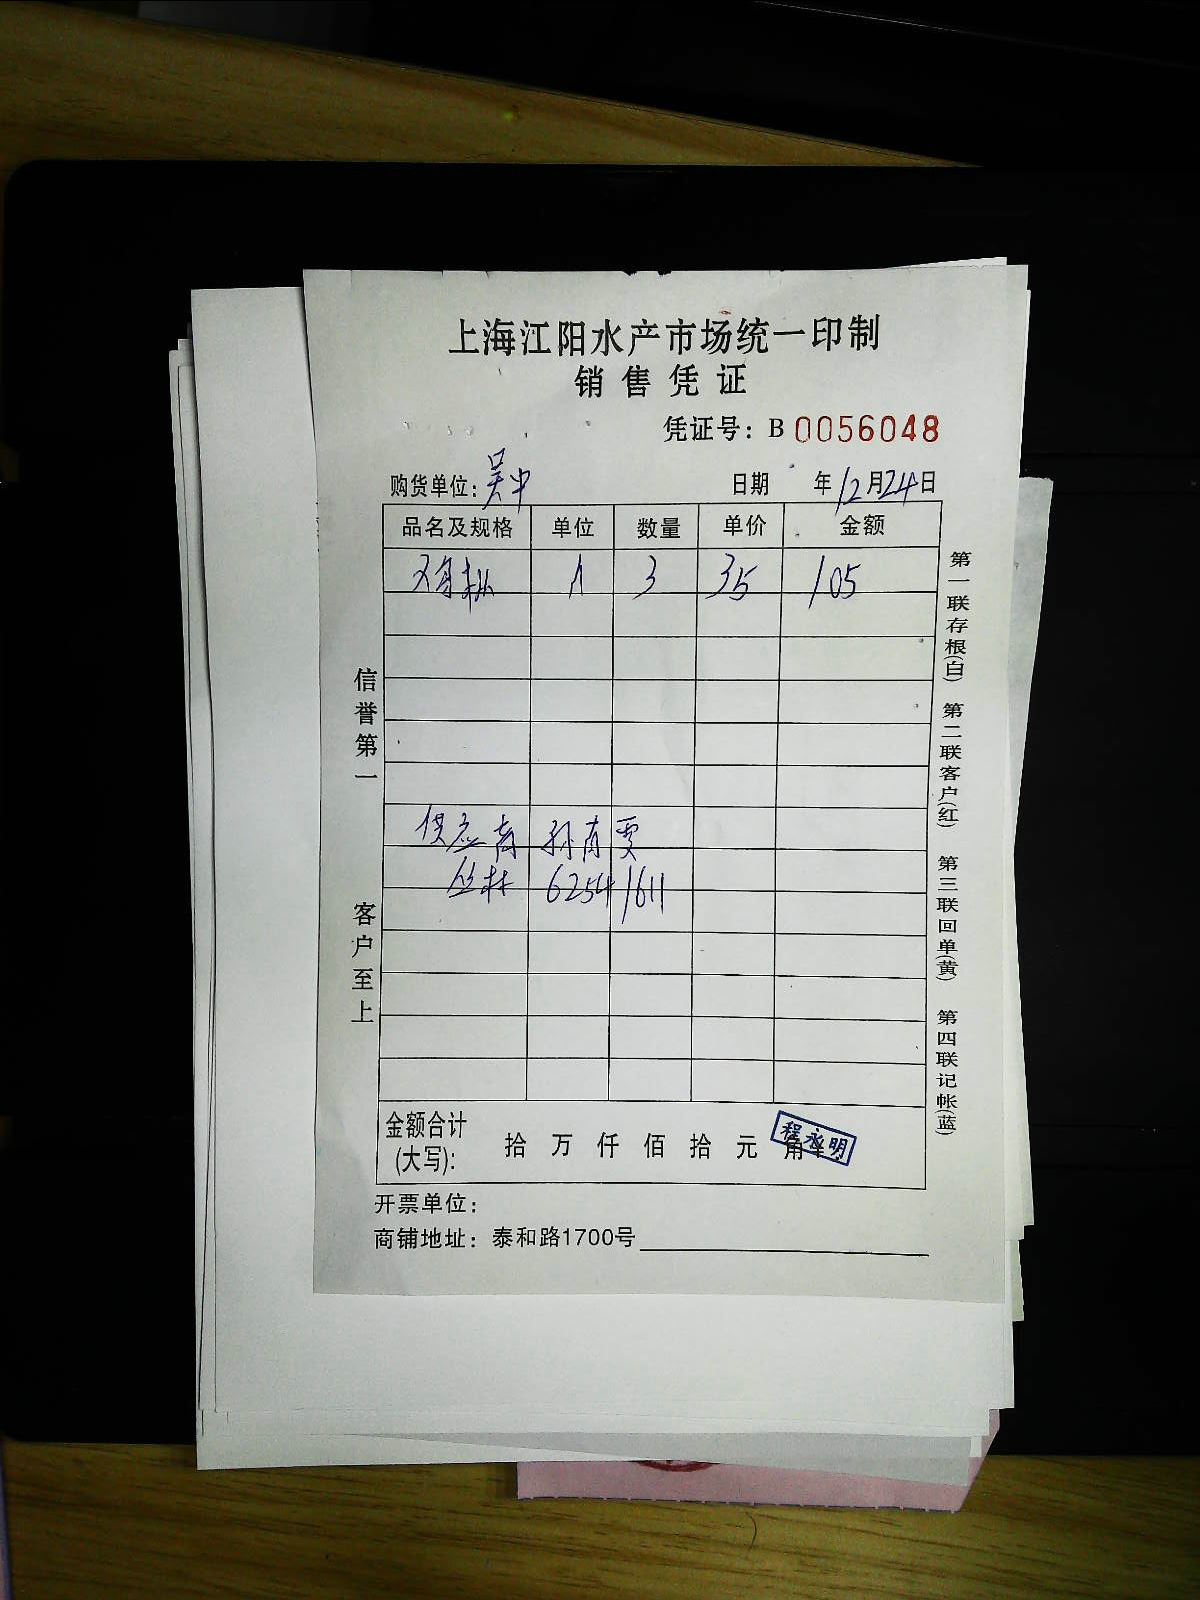 上海江阳水产市场统一印制
销售凭证
凭证号：B 0056048
购货单位：吴中
日期 年12月24日
品名及规格 单位 数量 单价 金额
3 35 105
供应商 孙肖雯
丛林 62541611
金额合计(大写)： 拾 万 仟 佰 拾 元 角
程永明
开票单位：
商铺地址：泰和路1700号
信誉第一
客户至上
第一联存根(白) 第二联客户(红) 第三联回单(黄) 第四联记帐(蓝)